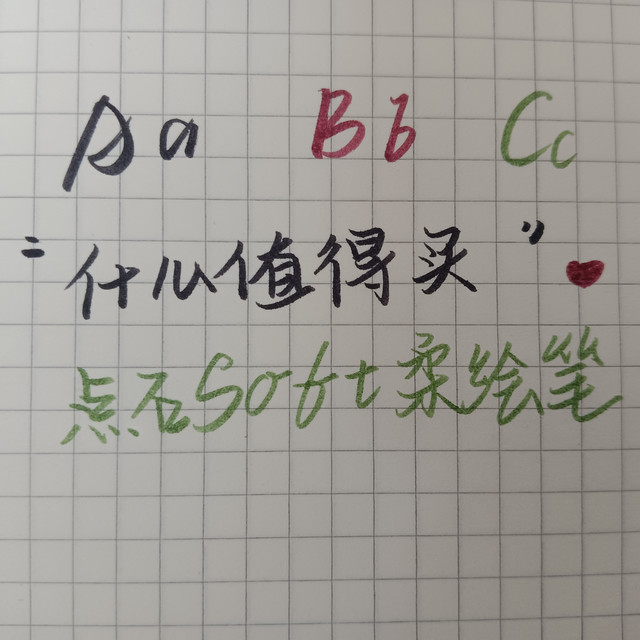 Aa Bb Cc
"什么值得买"
点石Soft柔绘笔